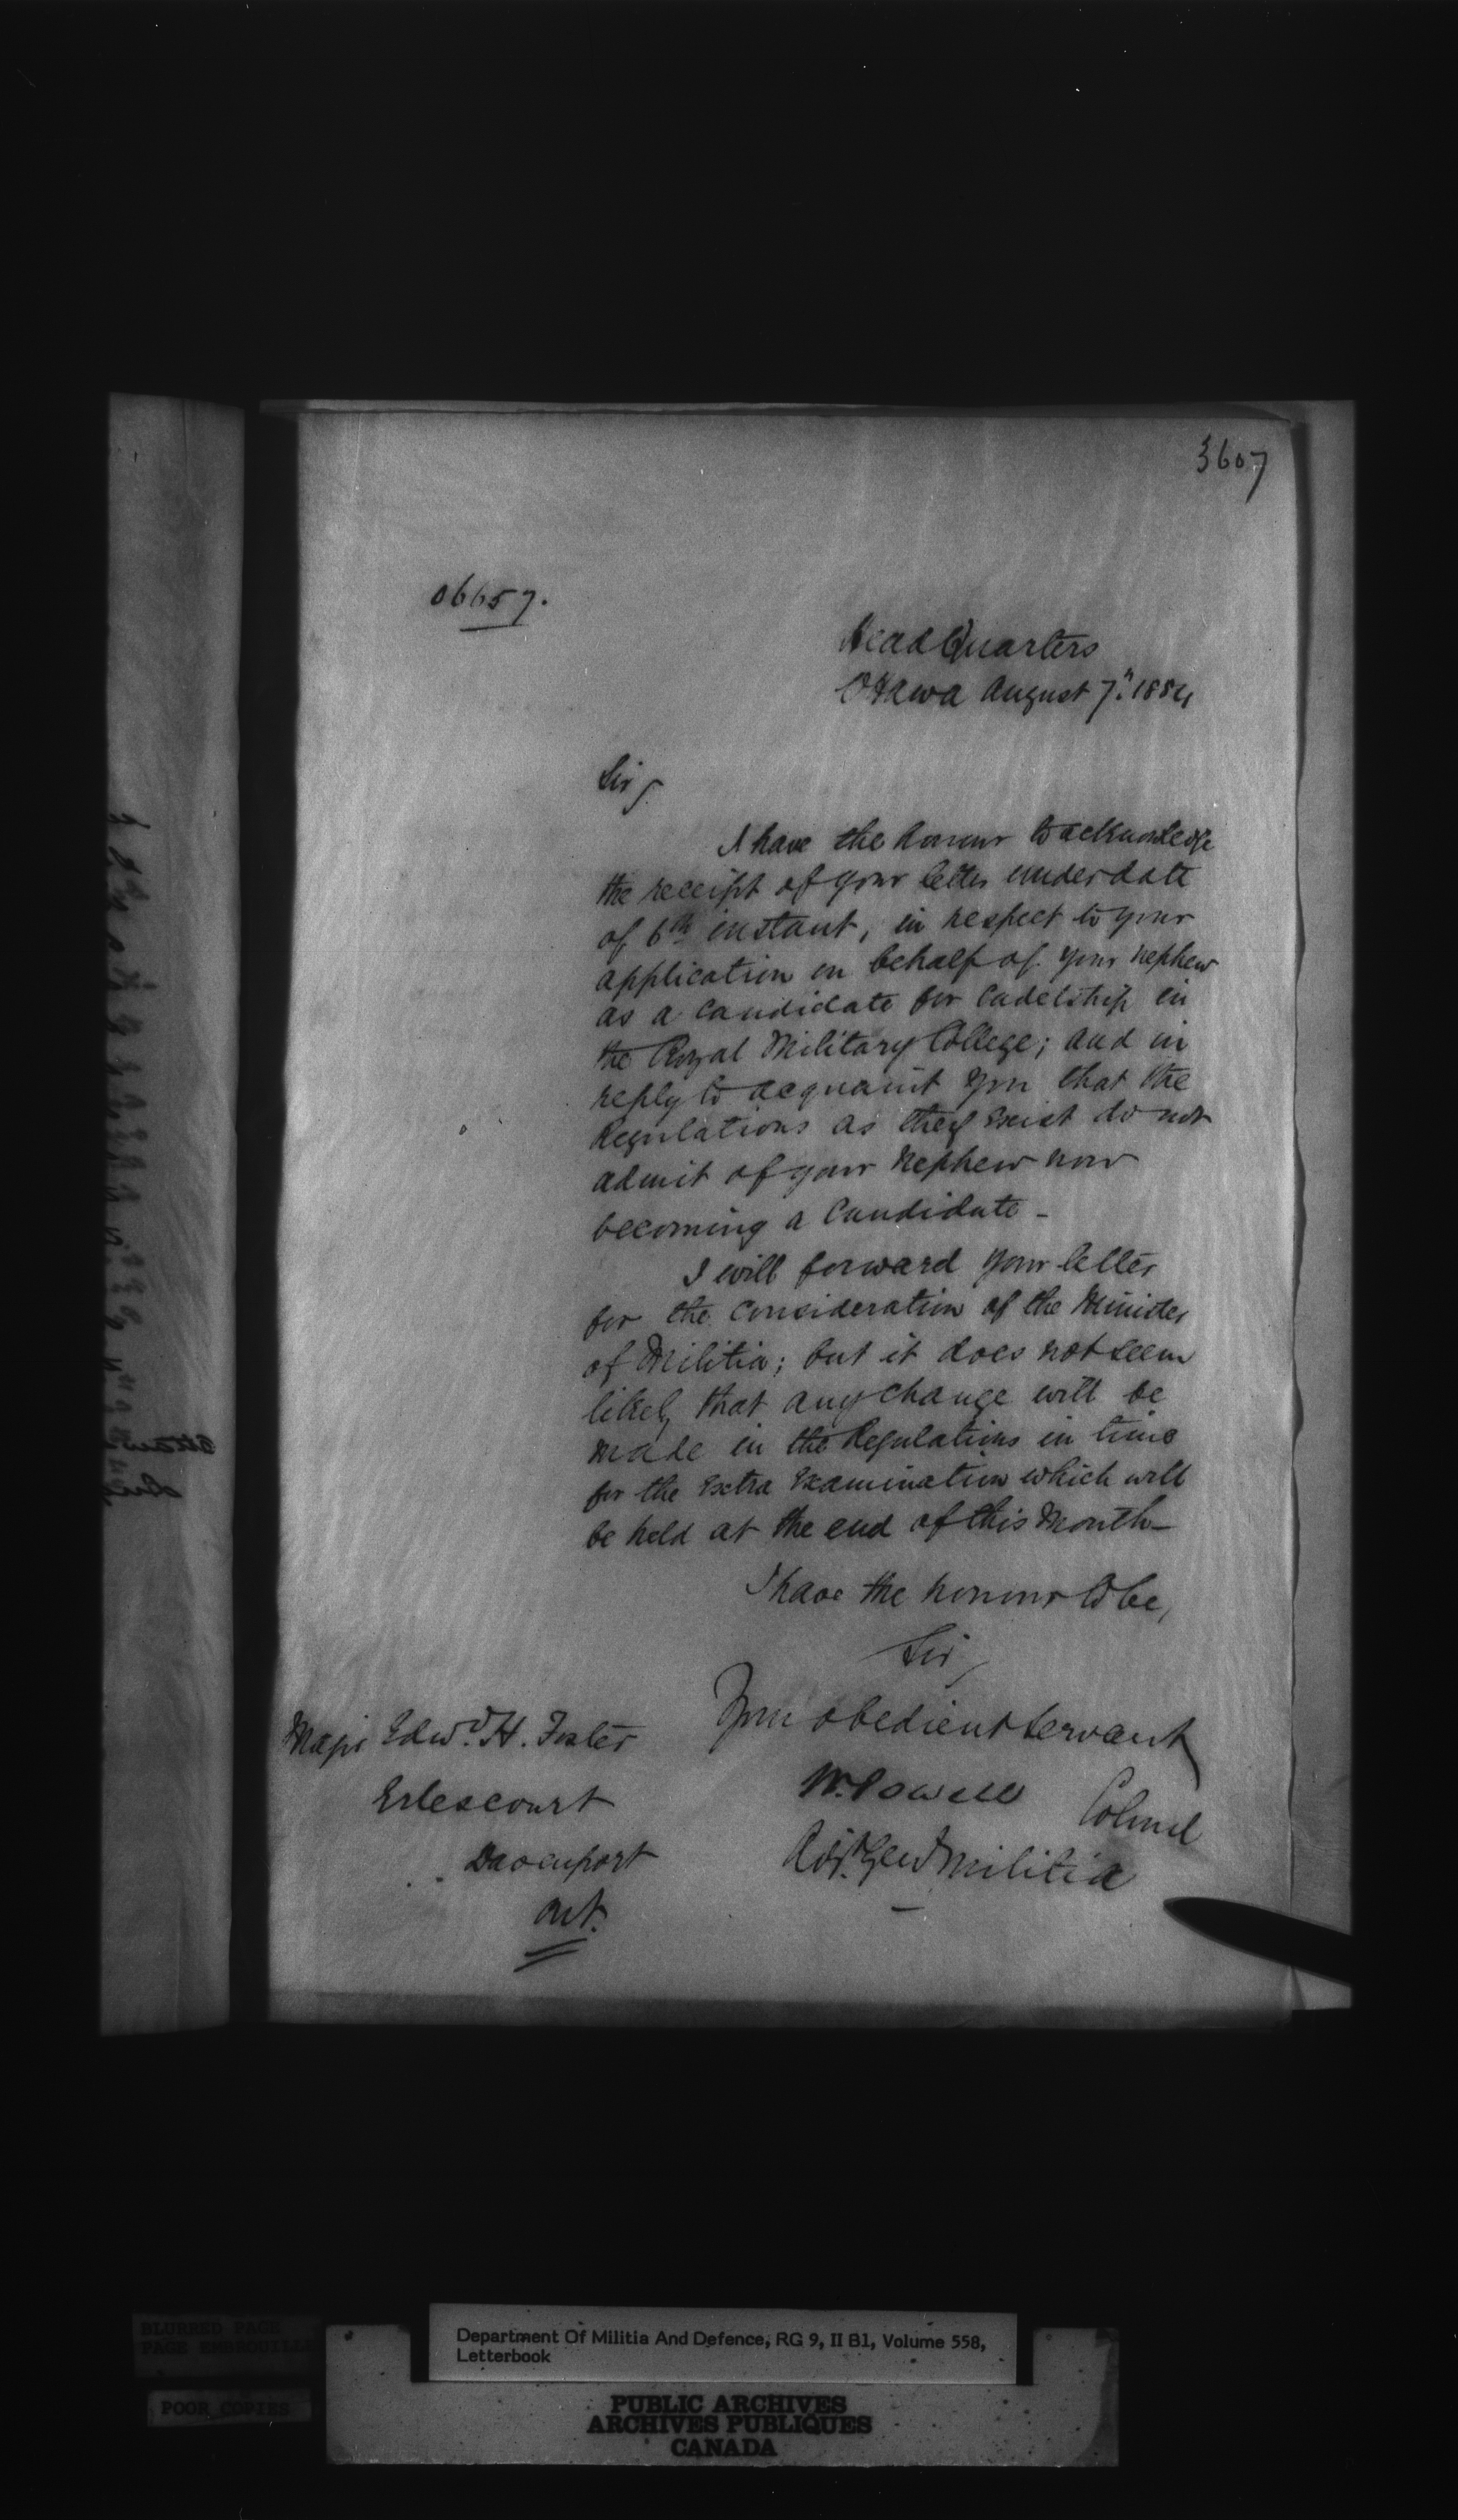 3607
06657.
Head Quarters
Ottawa August 7th 1884
Sir,
I have the honour to acknowledge
the receipt of your letter under date
of 6th instant, in respect to your
application on behalf of your nephew
as a Candidate for Cadetship in
the Royal Military College; and in
reply to acquaint you that the
Regulations as they Exist do not
admit of your Nephew now
becoming a Candidate -
I will forward your letter
for the Consideration of the Minister
of Militia; but it does not seem
likely that any change will be
made in the Regulations in time
for the Extra Examination which will
be held at the end of this Month -
I have the honour to be,
Sir,
Your obedient Servant
W. Powell Colonel
Adjt. Genl Militia
Major Edwd. H. Foster
Erlescourt
Davenport
Ont.
BLURRED PAGE
PAGE EMBROUILL
POOR COPIES
Department Of Militia And Defence, RG 9, II B1, Volume 558,
Letterbook
PUBLIC ARCHIVES
ARCHIVES PUBLIQUES
CANADA